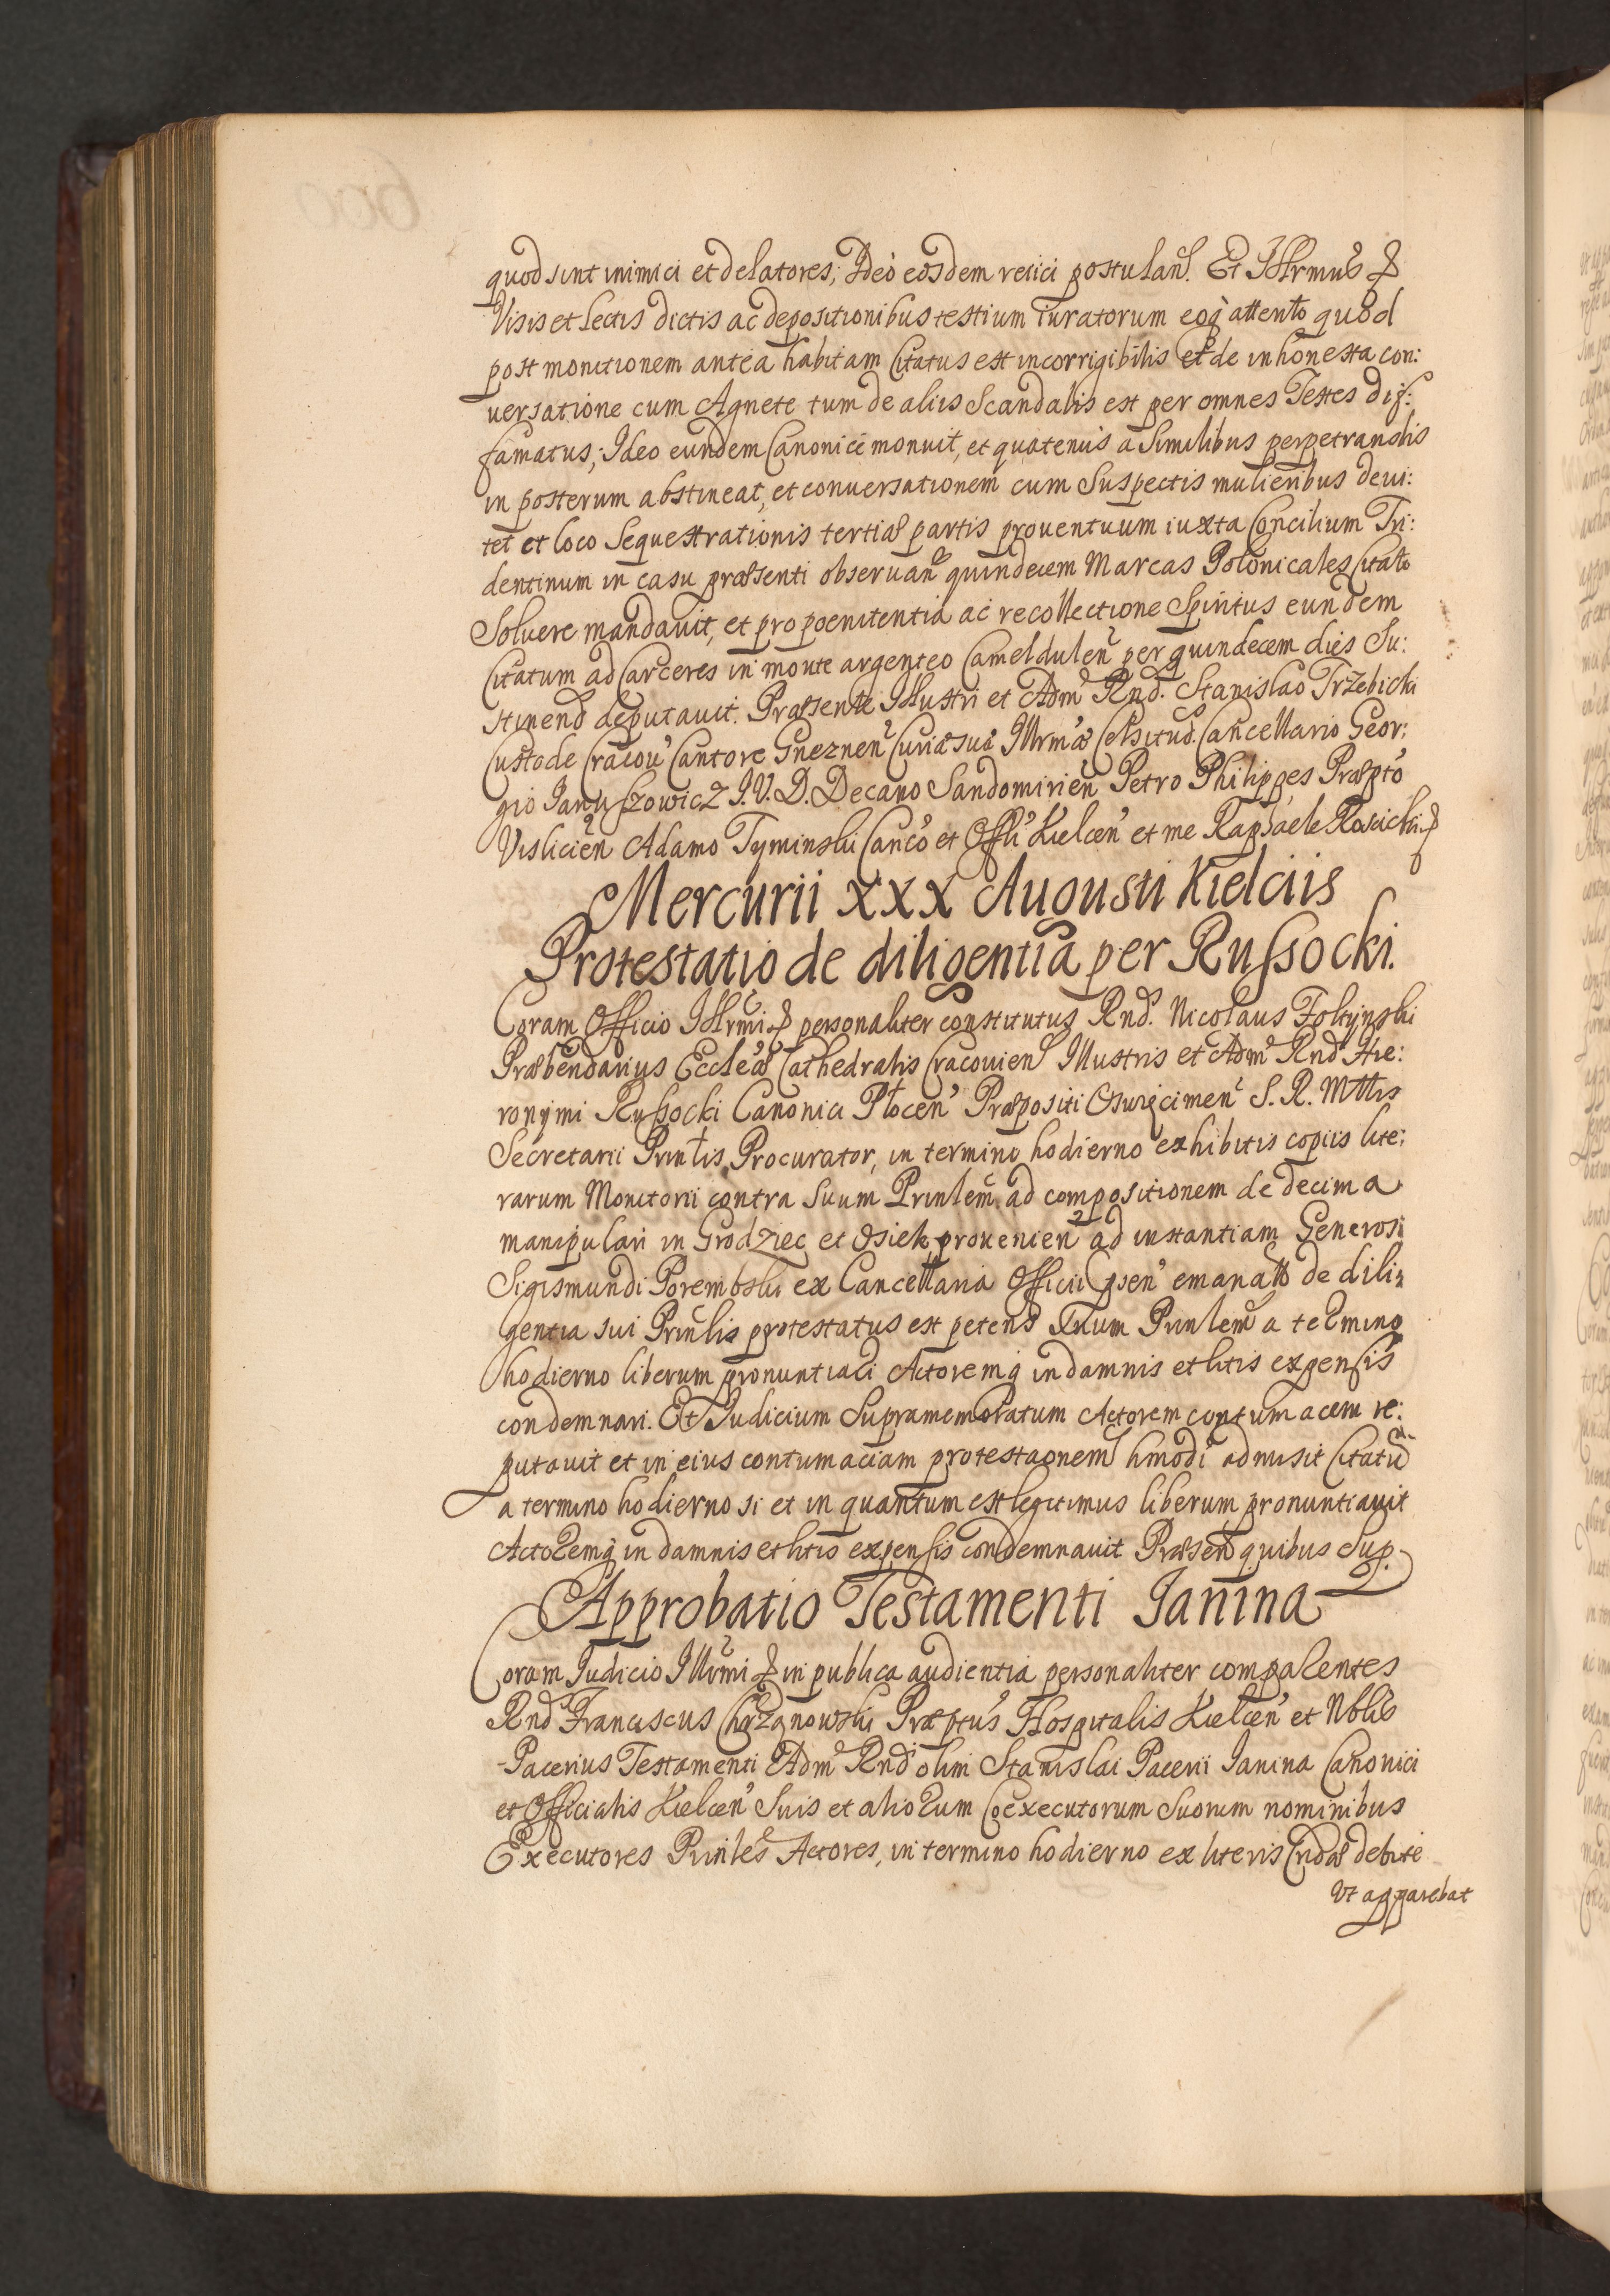 quod sint inimici et delatores; Ideo eosdem reiici postulan. Et Illrmus
Visis et lectis dictis ac depositionibus testium iuratorum eoq attento quod
post monitionem antea habitam Citatus est incorrigibilis et de inhonesta con:
uersatione cum Agnete tum de aliis Scandalis est per omnes Testes dif:
famatus; Ideo eundem Canonicè monuit, et quatenus a Similibus perpetrandis
in posterum abstineat, et conuersationem cum Suspectis mulieribus deui:
tet et loco Sequestrationis tertiæ partis prouentuum iuxta Concilium Tri:
dentinum in casu præsenti obseruan quindecem Marcas Polonicales Citato
Soluere mandauit, et pro poenitentia ac recollectione Spiritus eundem
Citatum ad Carceres in monte argenteo Cameldulen per quindecem dies Su:
stinend deputauit. Præsente Illustri et Adm Rnd. Stanislao Trzebicki
Custode Cracou Cantore Gneznen Curiæ suæ Illrmæ Celsitud. Cancellario Geor:
gio Januszowicz I. V. D. Decano Sandomirien Petro Philippes Præpto
Vislicien Adamo Tyminski Canco et Offli Kielcen et me Raphaele Roscicki
Mercurii xxx Augusti Kielciis
Protestatio de diligentia per Russocki.
Coram Officio Illrmi personaliter constitutus Rnd. Nicolaus Foltynski
Præbendarius Eccleæ Cathedralis Cracouien Illustris et Adm Rnd Hie:
ronymi Russocki Canonici Plocen Præpositi Oswięcimen S. R. Mttis
Secretarii Prinlis Procurator, in termino hodierno exhibitis copiis lite:
rarum Monitorii contra Suum Prinlem ad compositionem de decima
manipulari in Grodziec et Osiek prouenien ad instantiam Generosi
Sigismundi Porembski ex Cancellaria Officii psen emanatto de dili:
gentia sui Prinlis protestatus est petens Suum Prinlem a termino
hodierno liberum pronuntiari Actoremq in damnis et litis expensis
condemnari. Et Judicium Supramemoratum Actorem contumacem re:
putauit et in eius contumaciam protestaonem hmodi admisit Citatu
a termino hodierno si et in quantum est legitimus liberum pronuntiauit
Actoremq in damnis et litis expensis condemnauit Præsen quibus Sup.
Approbatio Testamenti Janina
Coram Judicio Illrmi in publica audientia personaliter comparentes
Rnd Franciscus Chrzanowski Præptus Hospitalis Kielcen et Nblis
Pacerius Testamenti Adm Rnd olim Stanislai Pacerii Janina Canonici
et Officialis Kielcen Suis et aliorum Coexecutorum Suorum nominibus
Executores Prinles Actores, in termino hodierno ex literis Cridæ debite
Vt apparebat